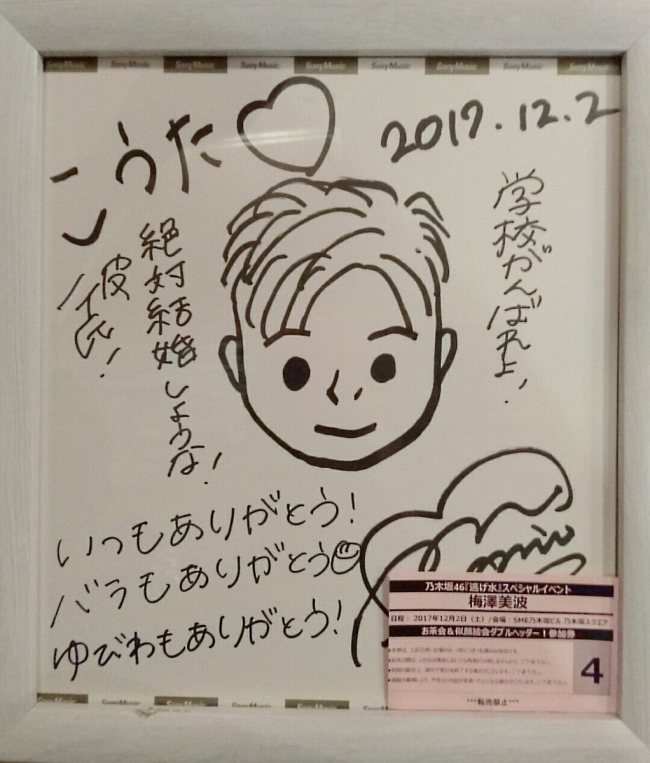 Sony Music
Sony Music
Sony Music
Sony Music
Sony Music
Sony Music
こうた
2017.12.2
学校がんばれよ!
絶対結婚しような!
彼氏!
いつもありがとう!
バラもありがとう
ゆびわもありがとう!
乃木坂46『逃げ水』スペシャルイベント
梅澤美波
日程：2017年12月2日（土）／会場：SME乃木坂ビル 乃木坂スクエア
お茶会&似顔絵会ダブルヘッダー！参加券
4
***転売禁止***
Sony Music
Sony Music